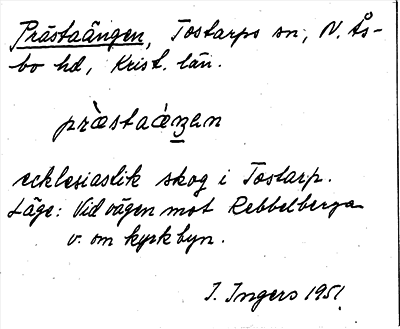 Prästaängen, Tostarps sn, N. Ås-
bo hd, Krist. län.
præ̀staæ̀ŋən
ecklesiastik skog i Tostarp.
Läge: Vid vägen mot Rebbelberga
v. om kyrkbyn.
I. Ingers 1951.